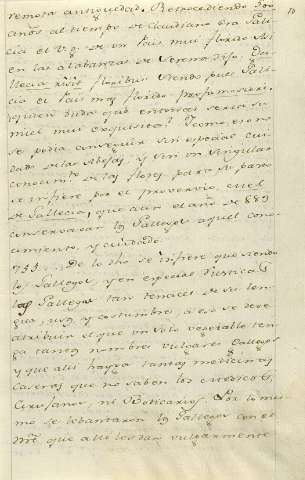 remota antiguedad. Retrocediendo
años al tiempo de Claudiano era Gali-
cia el un Pais mui florido. Asi
en las alabanzas de Serena dijo: Ga-
llecia risit floribus. Siendo pues Gali-
cia el Pais mas florido
quien duda que entonces seria su
miel mui exquisita? Y como eso no
se podia conseguir sin especial cui-
dado de las Abejas, y sin un singular
conocimto. de las flores, para su pasto
se infiere por el proverbio
de Gallecia, que aun el año de 883
conservaban los Gallegos aquel cono-
cimiento, y cuidado.
735 De lo dho se infiere que siendo
los Gallegos, y en especial
las Gallegas tan tenaces de su len-
gua, usos, y costumbres, a eso se deve
atribuir el que un solo vegetable ten-
ga tantos nombres vulgares Gallegos
y que alli haya tantas medicinas
caseras que no saben los Medicos,
Cirujanos, ni Boticarios. Por lo mis-
mo se lebantaron los Gallegos con el
que alli les dan vulgarmente